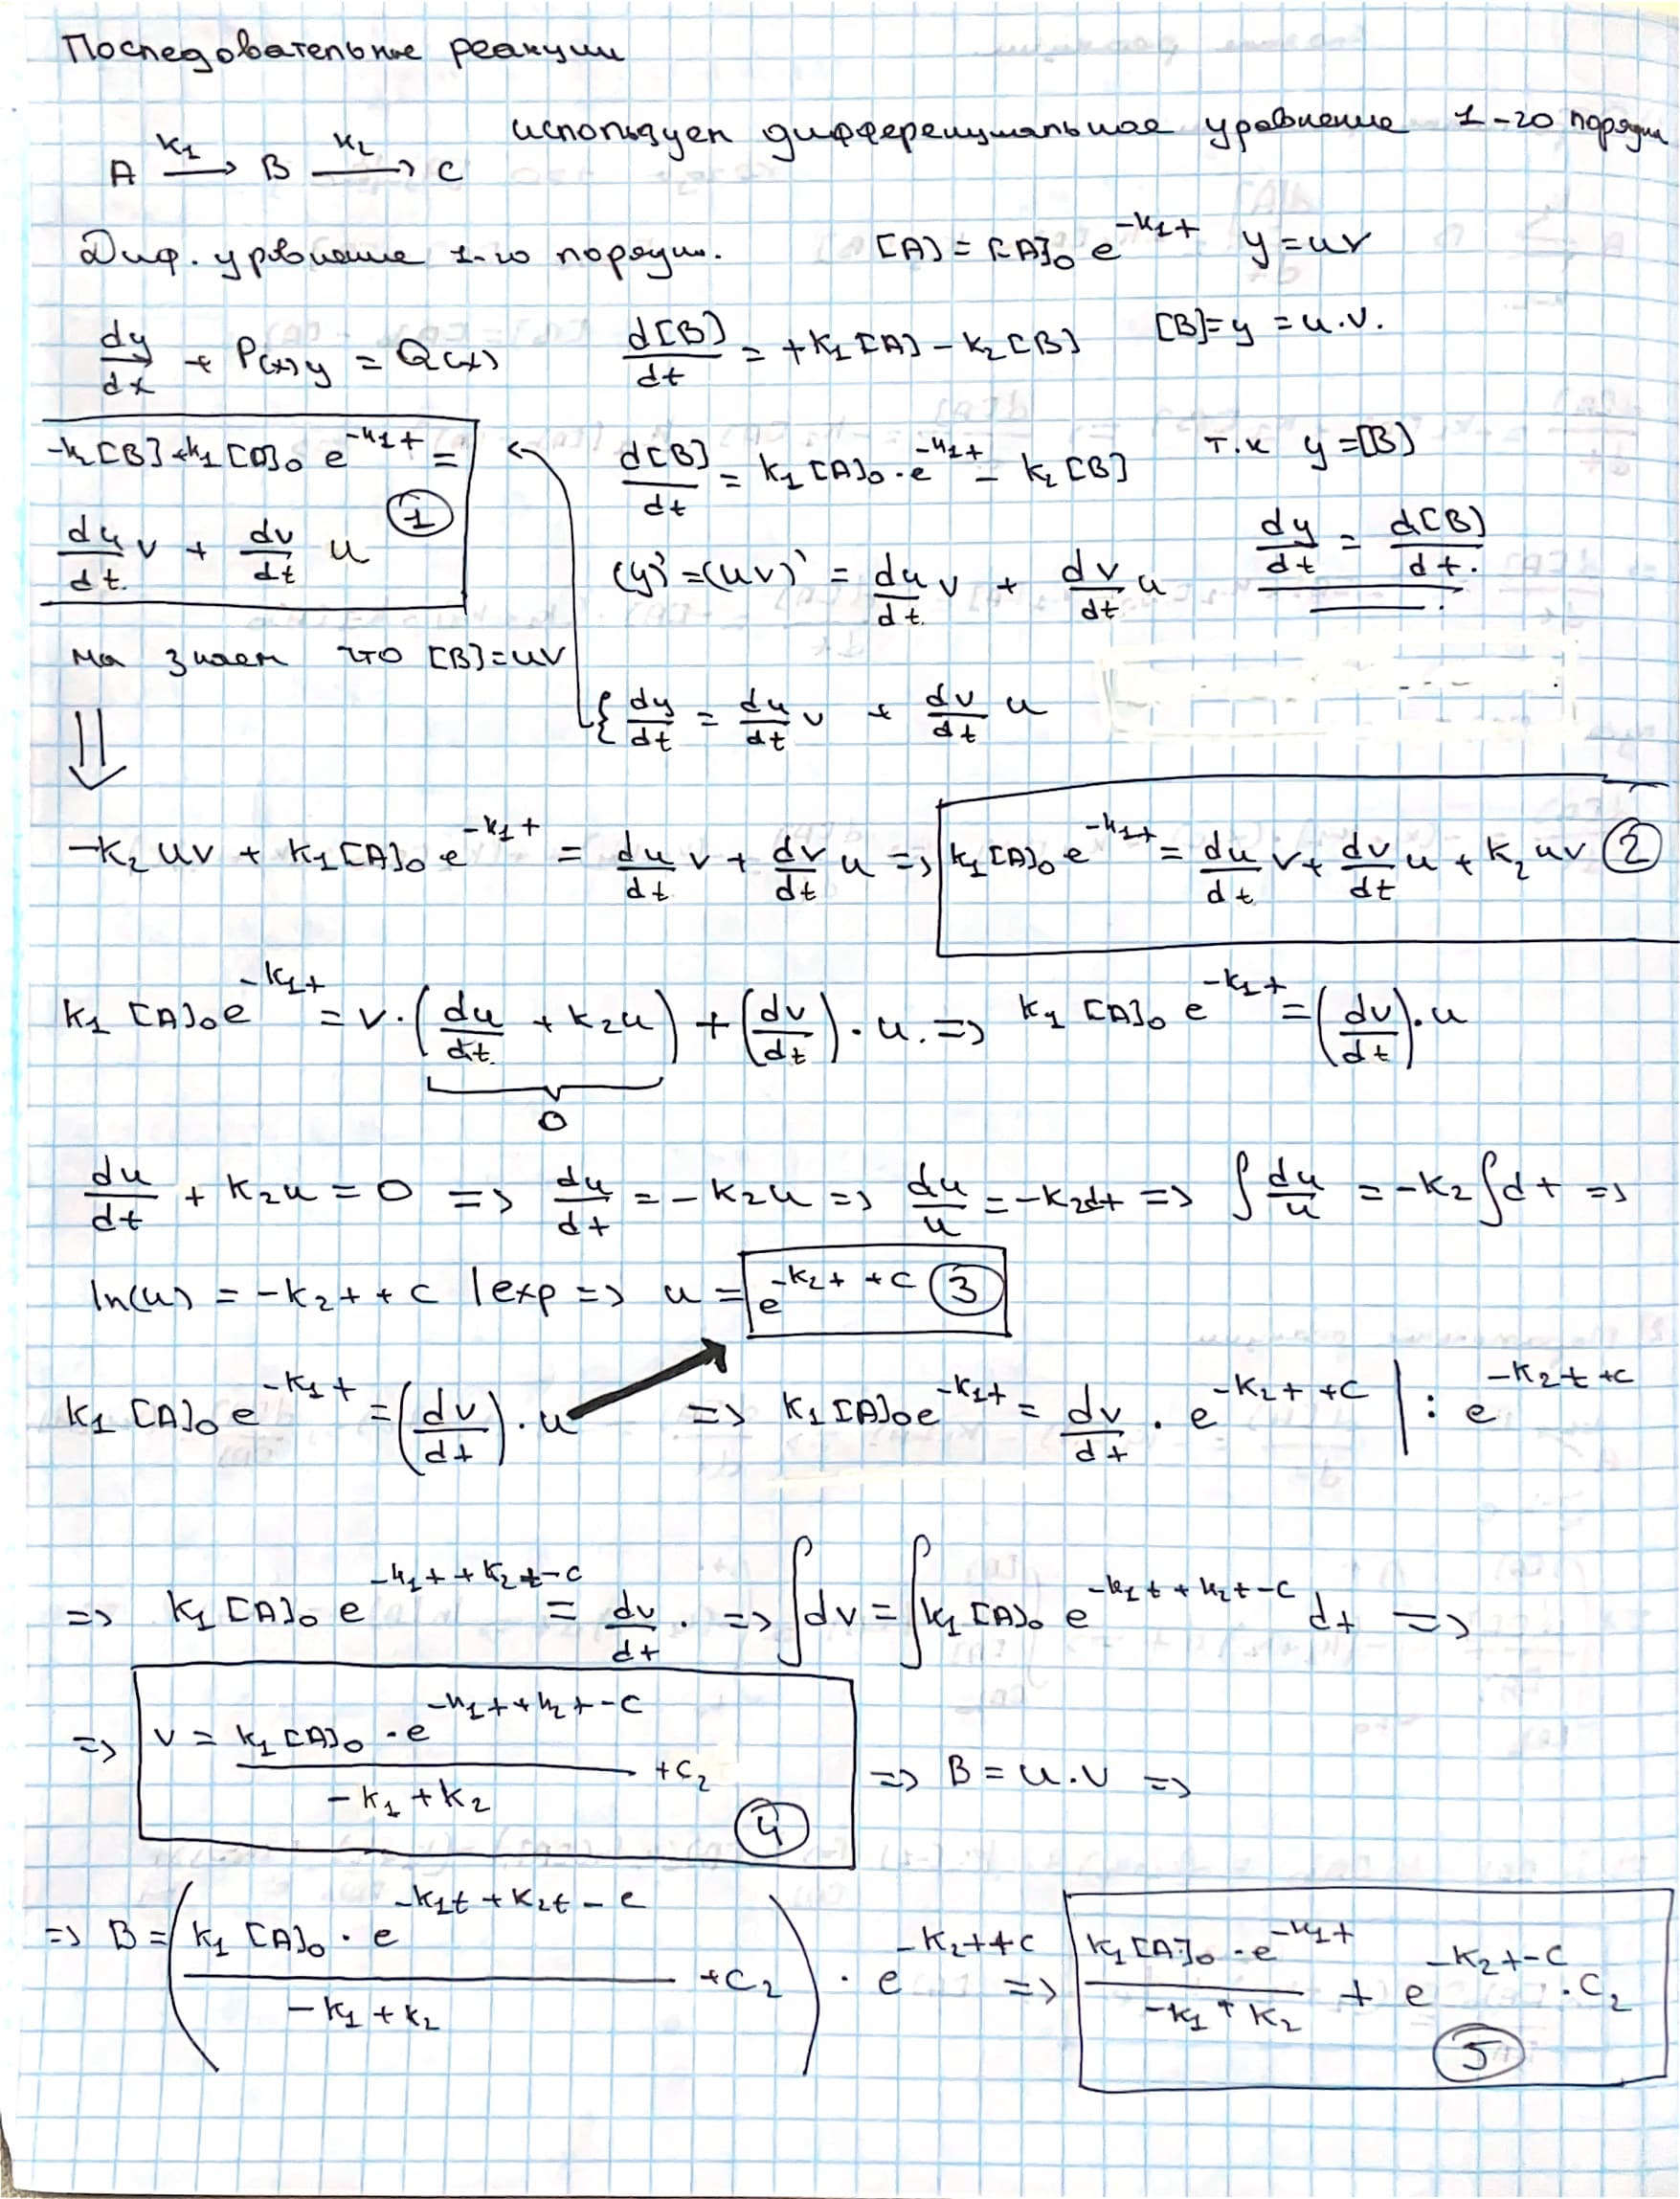 Последовательные реакции
A —k₁→ B —k₂→ C используем дифференциальное уравнение 1-го порядка
Диф. уравнение 1-го порядка. [A] = [A]₀ e^(-k₁t) y = uv
dy/dx + P(x)y = Q(x) d[B]/dt = +k₁[A] - k₂[B] [B] = y = u.v.
-k₂[B] + k₁[A]₀ e^(-k₁t) = d[B]/dt = k₁[A]₀ · e^(-k₁t) - k₂[B] т.к y = [B]
du/dt v + dv/dt u ① (y)' = (uv)' = du/dt v + dv/dt u dy/dt = d[B]/dt.
мы знаем что [B] = uv
{ dy/dt = du/dt v + dv/dt u
-k₂uv + k₁[A]₀ e^(-k₁t) = du/dt v + dv/dt u => k₁[A]₀ e^(-k₁t) = du/dt v + dv/dt u + k₂uv ②
k₁[A]₀ e^(-k₁t) = v · (du/dt + k₂u) + (dv/dt) · u. => k₁[A]₀ e^(-k₁t) = (dv/dt) · u
0
du/dt + k₂u = 0 => du/dt = -k₂u => du/u = -k₂dt => ∫ du/u = -k₂ ∫ dt =>
ln(u) = -k₂t + c | exp => u = e^(-k₂t + c) ③
k₁[A]₀ e^(-k₁t) = (dv/dt) · u => k₁[A]₀ e^(-k₁t) = dv/dt · e^(-k₂t + c) | : e^(-k₂t + c)
=> k₁[A]₀ e^(-k₁t + k₂t - c) = dv/dt . => ∫ dv = ∫ k₁[A]₀ e^(-k₁t + k₂t - c) dt =>
=> v = k₁[A]₀ · e^(-k₁t + k₂t - c) / (-k₁ + k₂) + c₂ ④ => B = u.v =>
=> B = (k₁[A]₀ · e^(-k₁t + k₂t - c) / (-k₁ + k₂) + c₂) · e^(-k₂t + c) => k₁[A]₀ · e^(-k₁t) / (-k₁ + k₂) + e^(-k₂t - c) · c₂ ⑤